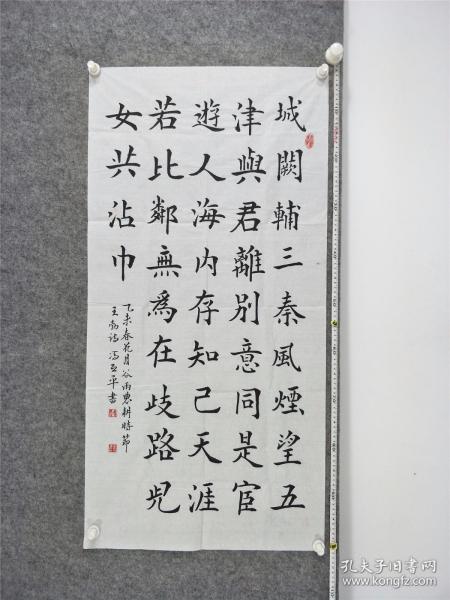 城闕輔三秦風煙望五
津與君離別意同是宦
遊人海内存知己天涯
若比鄰無為在歧路児
女共沾巾
乙未春花月谷雨農耕時節
王勃詩 馮亞平書
孔夫子旧书网
www.kongfz.com